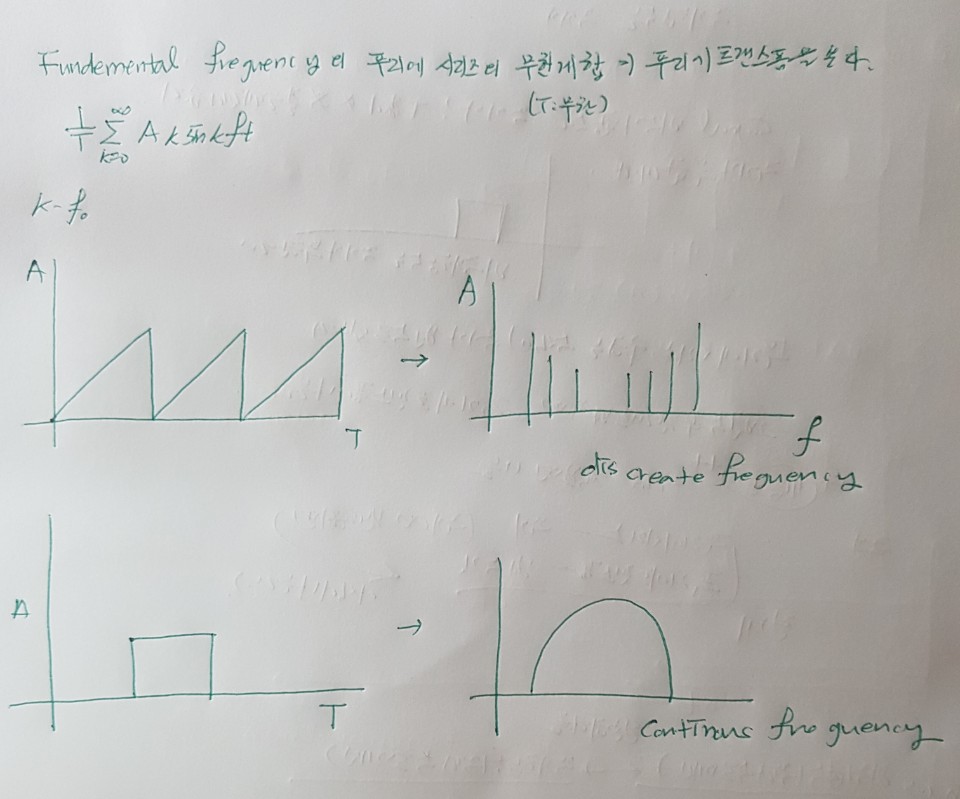 Fundemental frequency의 푸리에 시리즈의 무한계합 → 푸리에 트랜스폼을 쓴다.
(T:무한)
1/T ∞∑k=0 A k sin k ft
k - f₀
A
T
→
A
f
discreate frequency
A
T
→
contTnous frequency